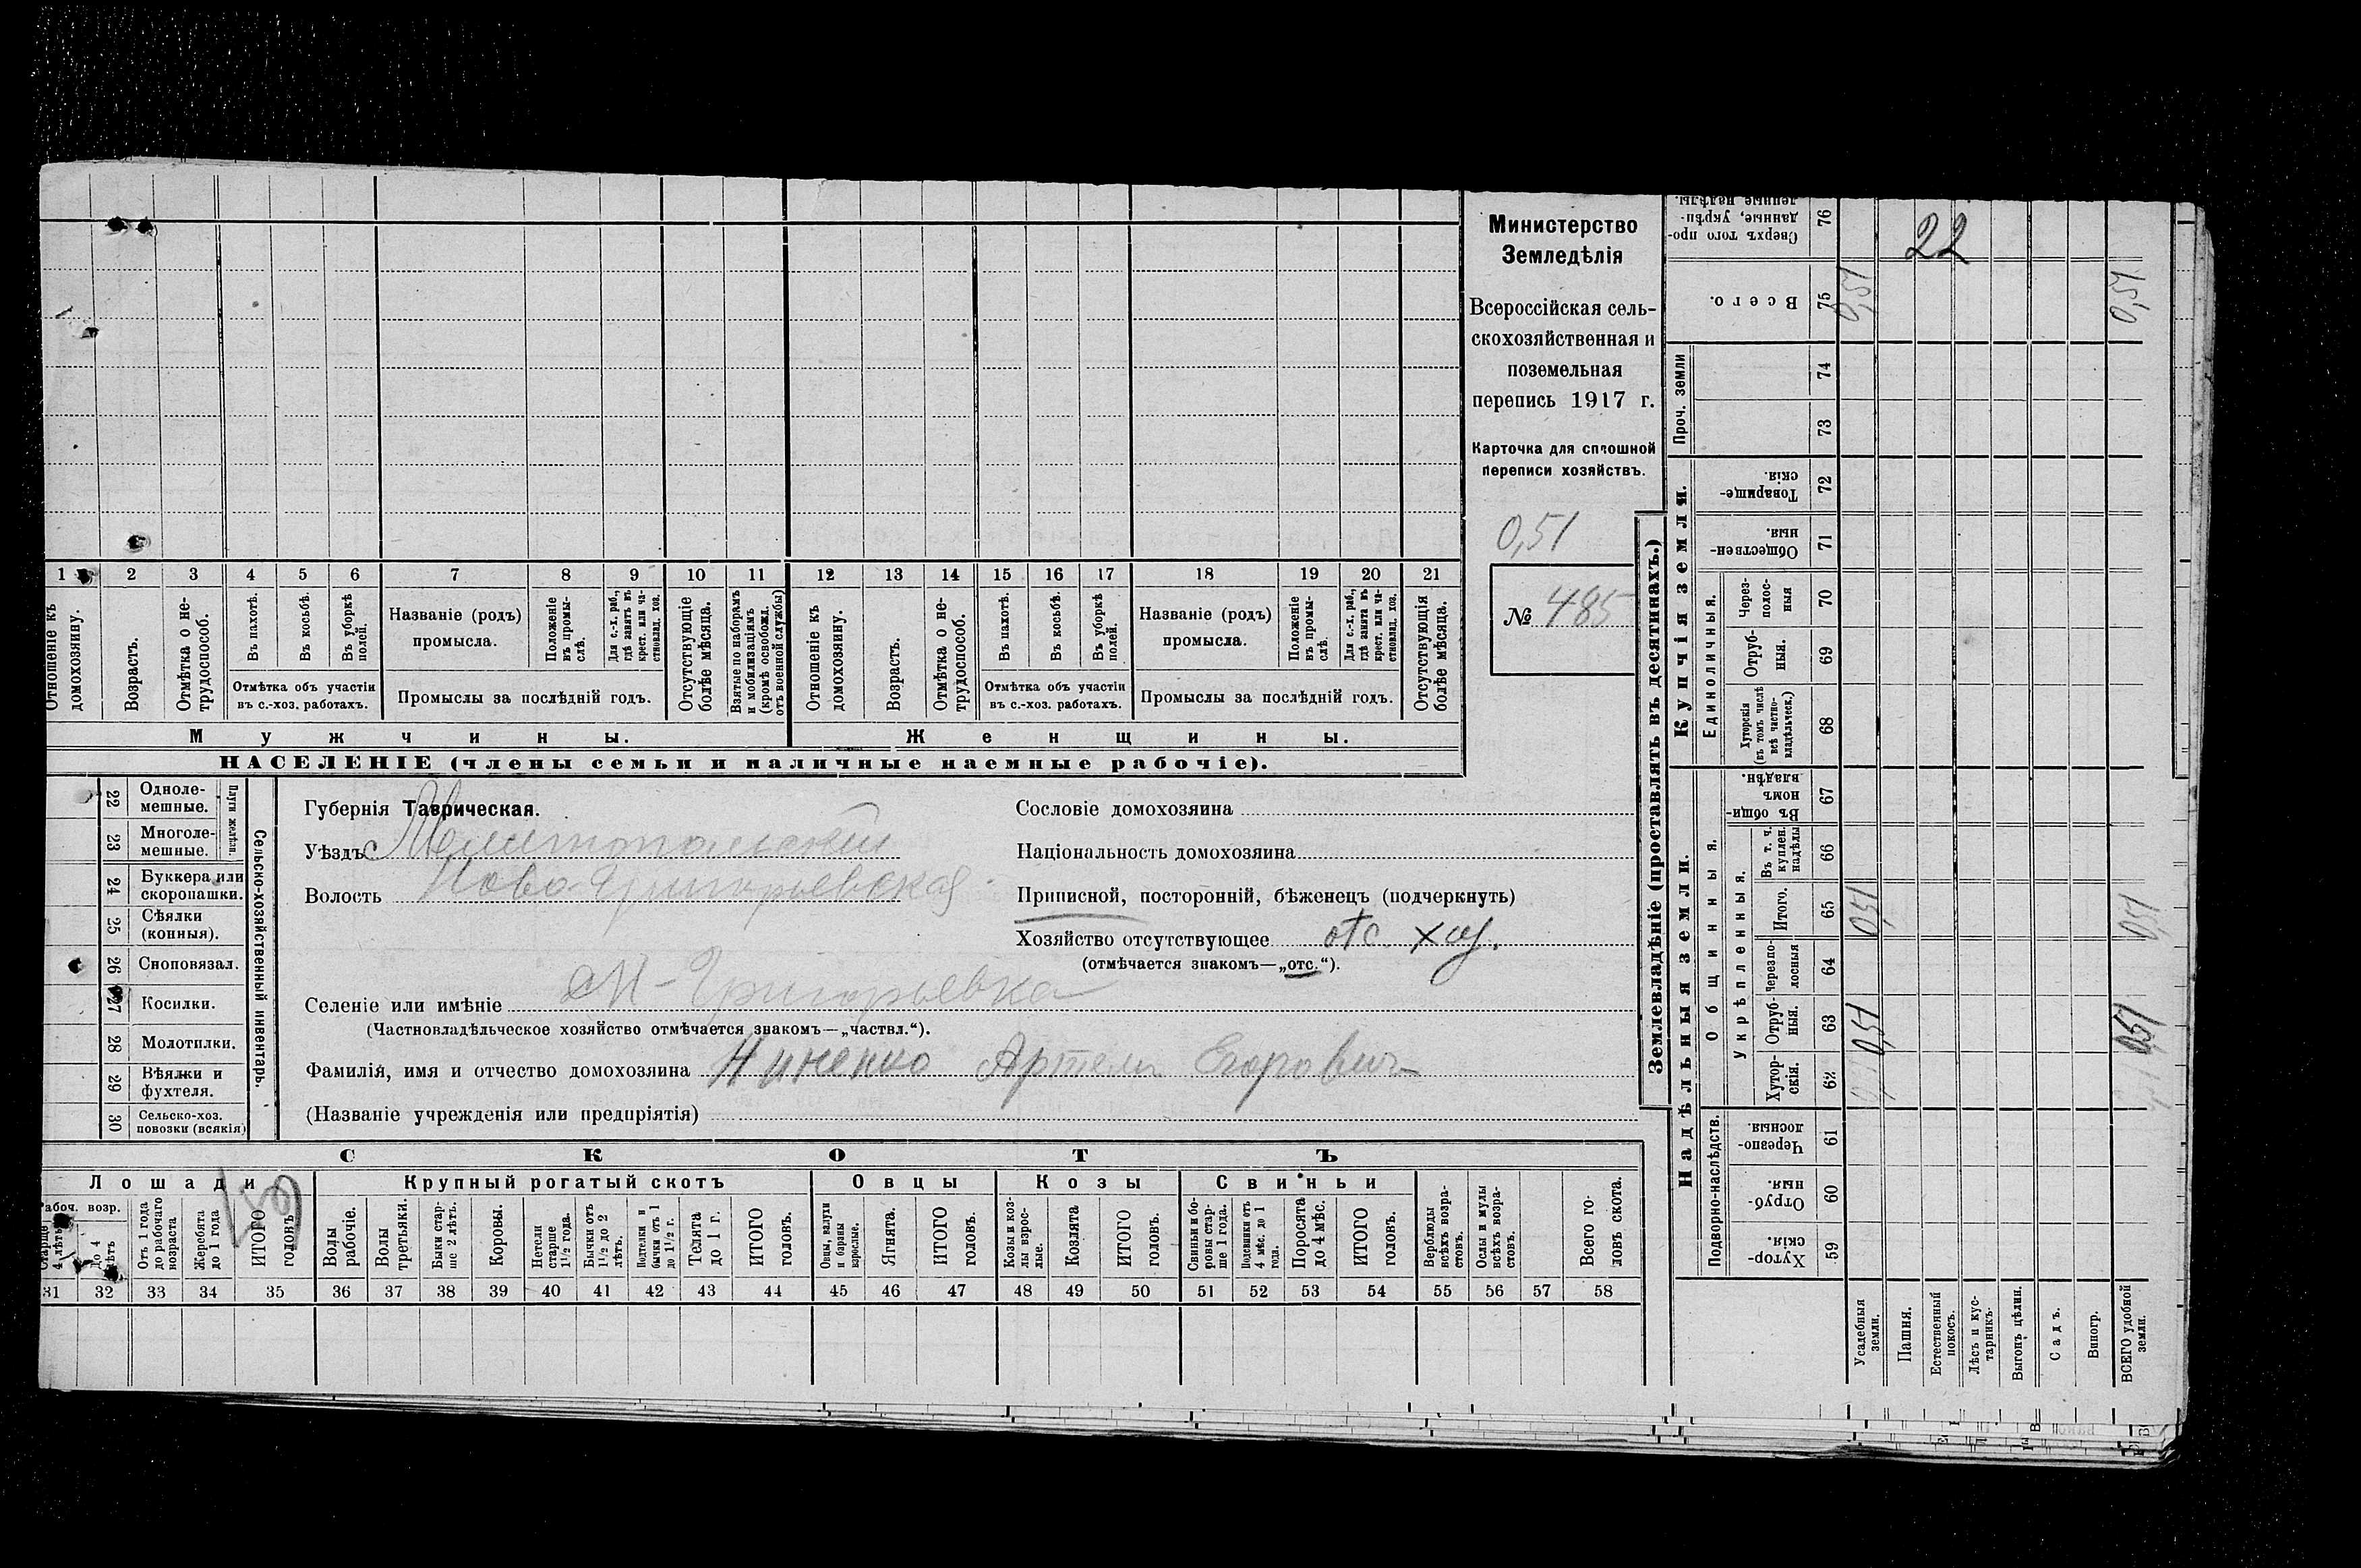 Министерство
Земледѣлія
Всероссійская сель-
скохозяйственная и
поземельная
перепись 1917 г.
Карточка для сплошной
переписи хозяйствъ.
0,51
№ 485
1 2 3 4 5 6 7 8 9 10 11 12 13 14 15 16 17 18 19 20 21
Отношеніе къ домохозяину.
Возрастъ.
Отмѣтка о не-трудоспособ.
Въ пахотѣ.
Въ косьбѣ.
Въ уборкѣ полей.
Отмѣтка объ участіи
въ с.-хоз. работахъ.
Названіе (родъ)
промысла.
Положеніе въ промы-слѣ.
Для с.-х. раб., гдѣ занятъ въ крест. или ча-стновлад. хоз.
Промыслы за послѣдній годъ.
Отсутствующіе болѣе мѣсяца.
Взятые по наборамъ и мобилизаціямъ (кромѣ освобожд. отъ военной службы)
Отношеніе къ домохозяину.
Возрастъ.
Отмѣтка о не-трудоспособ.
Въ пахотѣ.
Въ косьбѣ.
Въ уборкѣ полей.
Отмѣтка объ участіи
въ с.-хоз. работахъ.
Названіе (родъ)
промысла.
Положеніе въ промы-слѣ.
Для с.-х. раб., гдѣ занята въ крест. или ча-стновлад. хоз.
Промыслы за послѣдній годъ.
Отсутствующія болѣе мѣсяца.
Мужчины.
Женщины.
НАСЕЛЕНІЕ (члены семьи и наличные наемные рабочіе).
22 Однолемешные.
23 Многолемешные.
Плуги желѣзн.
24 Буккера или скоропашки.
25 Сѣялки (конныя).
26 Сноповязал.
27 Косилки.
28 Молотилки.
29 Вѣялки и фухтеля.
30 Сельско-хоз. повозки (всякія)
Сельско-хозяйственный инвентарь.
Губернія Таврическая.
Уѣздъ Мелитопольскій
Волость Ново-Григорьевская
Сословіе домохозяина
Національность домохозяина
Приписной, посторонній, бѣженецъ (подчеркнуть)
Хозяйство отсутствующее отс. хоз.
(отмѣчается знакомъ—„отс.“).
Селеніе или имѣніе Н-Григорьевка
(Частновладѣльческое хозяйство отмѣчается знакомъ—„частвл.“).
Фамилія, имя и отчество домохозяина Артем Егорович
(Названіе учрежденія или предпріятія)
СКОТЪ
Лошади
Крупный рогатый скотъ
Овцы
Козы
Свиньи
Рабоч. возр.
Старше 4 лѣтъ
До 4 лѣтъ
Отъ 1 года до рабочаго возраста
Жеребята до 1 года
ИТОГО головъ
Волы рабочіе.
Волы третьяки.
Быки стар-ше 2 лѣтъ.
Коровы.
Нетели старше 1½ года.
Бычки отъ 1½ до 2 лѣтъ.
Подтелки и бычки отъ 1 до 1½ г.
Телята до 1 г.
ИТОГО головъ.
Овцы, валухи и бараны взрослые.
Ягнята.
ИТОГО головъ.
Козы и коз-лы взрос-лые.
Козлята
ИТОГО головъ.
Свиньи и бо-ровы стар-ше 1 года.
Подсвинки отъ 4 мѣс. до 1 года.
Поросята до 4 мѣс.
ИТОГО головъ.
Верблюды всѣхъ возра-стовъ.
Ослы и мулы всѣхъ возра-стовъ.
Всего го-ловъ скота.
31 32 33 34 35 36 37 38 39 40 41 42 43 44 45 46 47 48 49 50 51 52 53 54 55 56 57 58
Землевладѣніе (проставлять въ десятинахъ.)
Надѣльныя земли.
Купчія земли.
Проч. земли
Подворно-наслѣдств.
Общинныя.
Укрѣпленныя.
Единоличныя.
Сверхъ того про-данные, укрѣп-ленные надѣлы. 76
Всего. 75
74
73
Товарище-скія 72
Обществен-ныя. 71
Через-полос-ныя 70
Отруб-ныя. 69
Хуторскія (въ томъ числѣ всѣ частно-владѣльческ.) 68
Въ общин-номъ владѣн. 67
Въ т. ч. куплен. надѣлы 66
Итого. 65
Черезпо-лосныя 64
Отруб-ныя. 63
Хутор-скія. 62
Черезпо-лосныя. 61
Отруб-ныя. 60
Хутор-скія. 59
22
0,51 0,51
0,51 0,51
0,51 0,51
Усадебныя земли.
Пашня.
Естественный покосъ.
Лѣсъ и кус-тарникъ.
Выгонъ цѣлин.
Садъ.
Виногр.
ВСЕГО удобной земли.